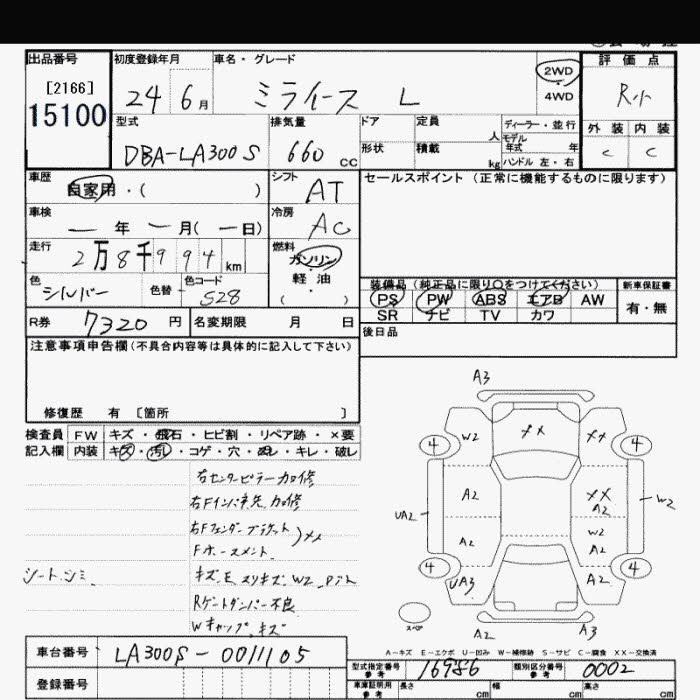 出品番号
[2166]
15100
初度登録年月
24 6月
車名・グレード
ミライース L
2WD
4WD
評価点
R小
外装 内装
C C
型式
DBA-LA300S
排気量
660 cc
ドア
形状
定員 人
積載 kg
ディーラー・並行
モデル年式 年
ハンドル 左・右
車歴
自家用・( )
シフト
AT
セールスポイント (正常に機能するものに限ります)
車検
ー 年 ー 月(ー日)
冷房
AC
走行
2万8千994km
燃料
ガソリン
軽油
( )
色
シルバー
色替
色コード
S28
装備品 (純正品に限り○をつけてください)
PS PW ABS エアB AW
SR ナビ TV カワ
新車保証書
有・無
R券 7320円
名変期限 月 日
後日品
注意事項申告欄(不具合内容等は具体的に記入して下さい)
修復歴 有 [箇所 ]
検査員
記入欄
FW キズ・飛石・ヒビ割・リペア跡・×要
内装 キズ・汚レ・コゲ・穴・ヌレ・キレ・破レ
右センターピラー加修
右Fインパネ先加修
右Fフェンダーブラケット
Fホースメント )××
シートシミ
キズE スリキズ W2 P
Rゲートダンパー不良
Wキャップキズ
A3
W2
××
××
4
4
A2
××
A2
UA2
W2
A2
W2
A2
4
4
UA3
A2
スペア
A2
A3
A-キズ E-エクボ U-凹み W-補修跡 S-サビ C-腐食 XX-交換済
車台番号
LA300S-0011105
登録番号
型式指定番号
参考
16986
類別区分番号
参考
0002
車庫証明用
参考
長さ cm
幅 cm
高さ cm